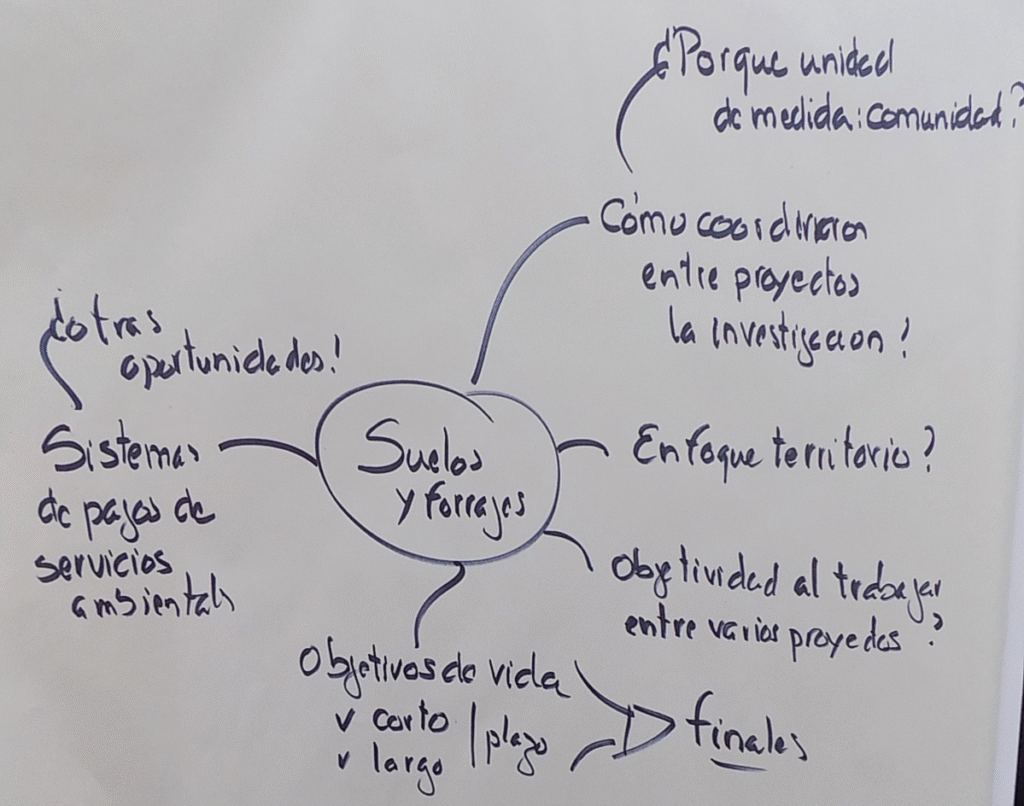 ¿Porque unidad
de medida: comunidad?
Cómo coordinaron
entre proyectos
la investigacion?
¿otras
oportunidades!
Sistemas
de pagos de
servicios
ambientals
Suelos
y forrajes
Enfoque territorio?
Objetividad al trabajar
entre varios proyectos?
Objetivos de vida
v corto
v largo
| plazo
finales